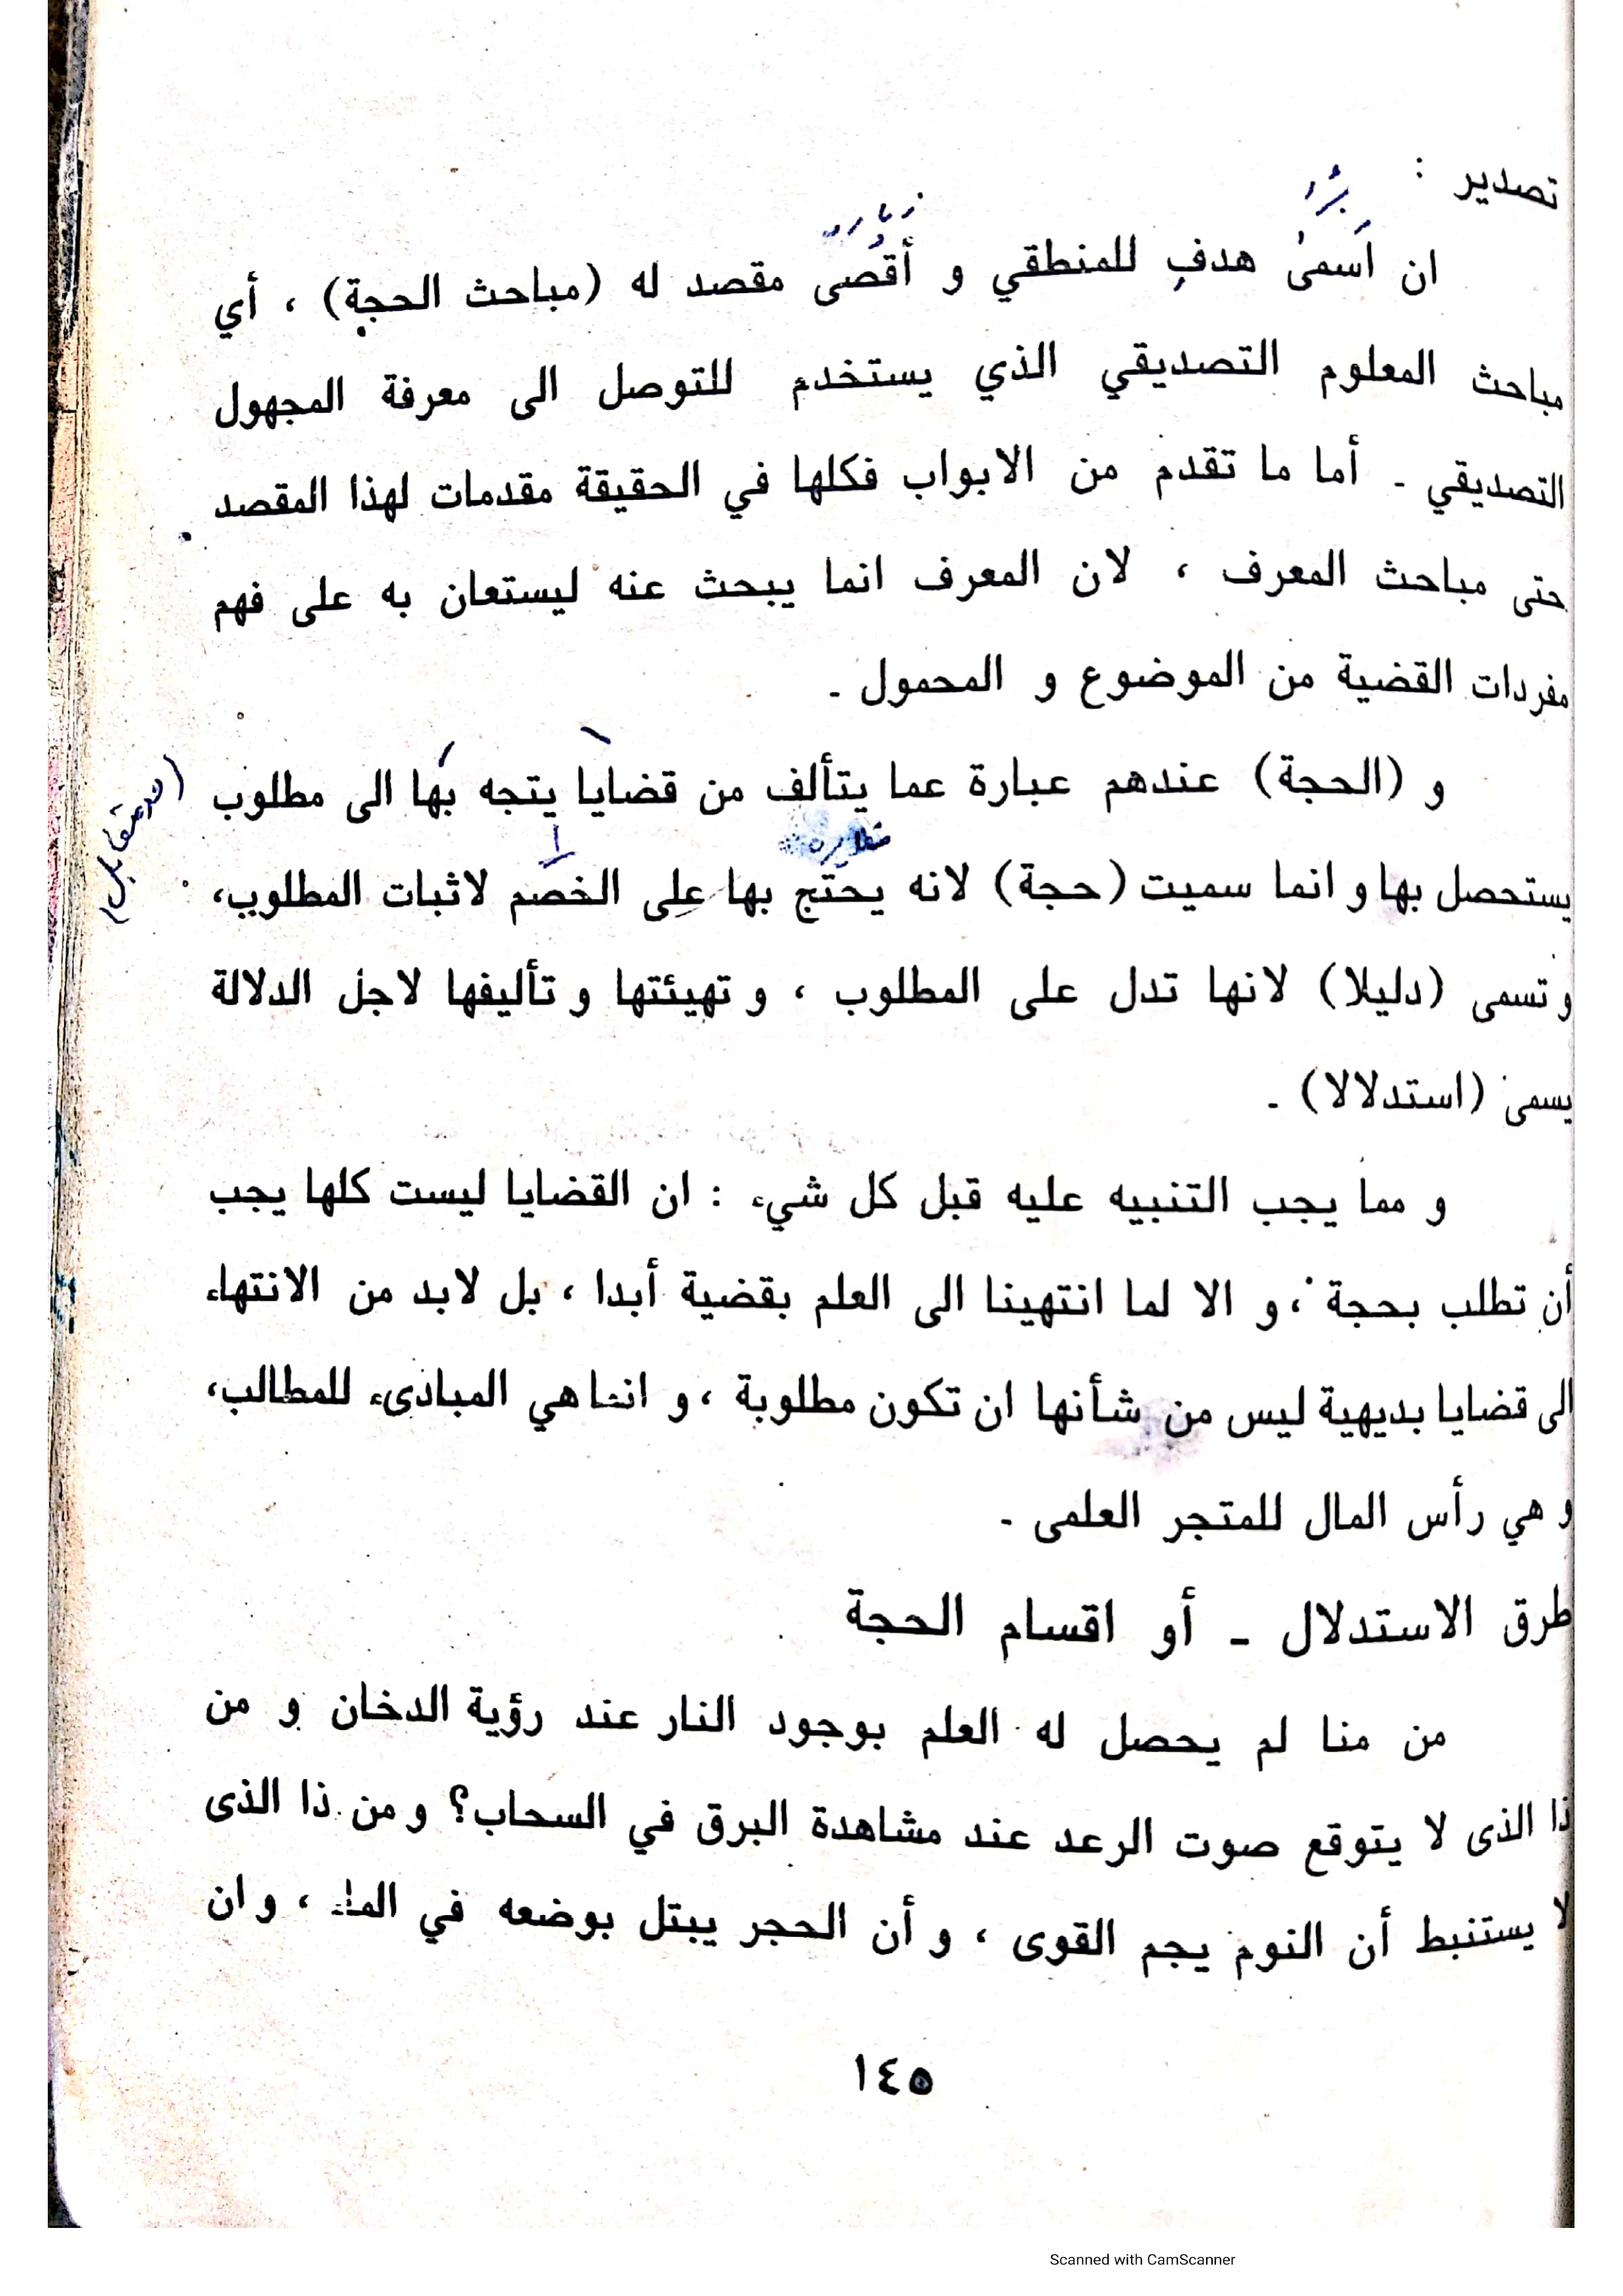 تصدير :
ان اَسمىٰ هدفِ للمنطقي و أقصى مقصد له (مباحث الحجة) ، أي
مباحث المعلوم التصديقي الذي يستخدم للتوصل الى معرفة المجهول
التصديقي - أما ما تقدم من الابواب فكلها في الحقيقة مقدمات لهذا المقصد
حتى مباحث المعرف ، لان المعرف انما يبحث عنه ليستعان به على فهم
مفردات القضية من الموضوع و المحمول -
و (الحجة) عندهم عبارة عما يتألف من قضايا يتجه بها الى مطلوب
يستحصل بها و انما سميت (حجة) لانه يحتج بها على الخصم لاثبات المطلوب،
و تسمى (دليلا) لانها تدل على المطلوب ، و تهيئتها و تأليفها لاجل الدلالة
يسمى (استدلالا) -
و مما يجب التنبيه عليه قبل كل شيء : ان القضايا ليست كلها يجب
أن تطلب بحجة ، و الا لما انتهينا الى العلم بقضية أبدا ، بل لابد من الانتهاء
الى قضايا بديهية ليس من شأنها ان تكون مطلوبة ، و انما هي المبادىء للمطالب،
و هي رأس المال للمتجر العلمى -
طرق الاستدلال - أو اقسام الحجة
من منا لم يحصل له العلم بوجود النار عند رؤية الدخان و من
ذا الذى لا يتوقع صوت الرعد عند مشاهدة البرق في السحاب؟ و من ذا الذى
لا يستنبط أن النوم يجم القوى ، و أن الحجر يبتل بوضعه في الماء ، و ان
١٤٥
Scanned with CamScanner